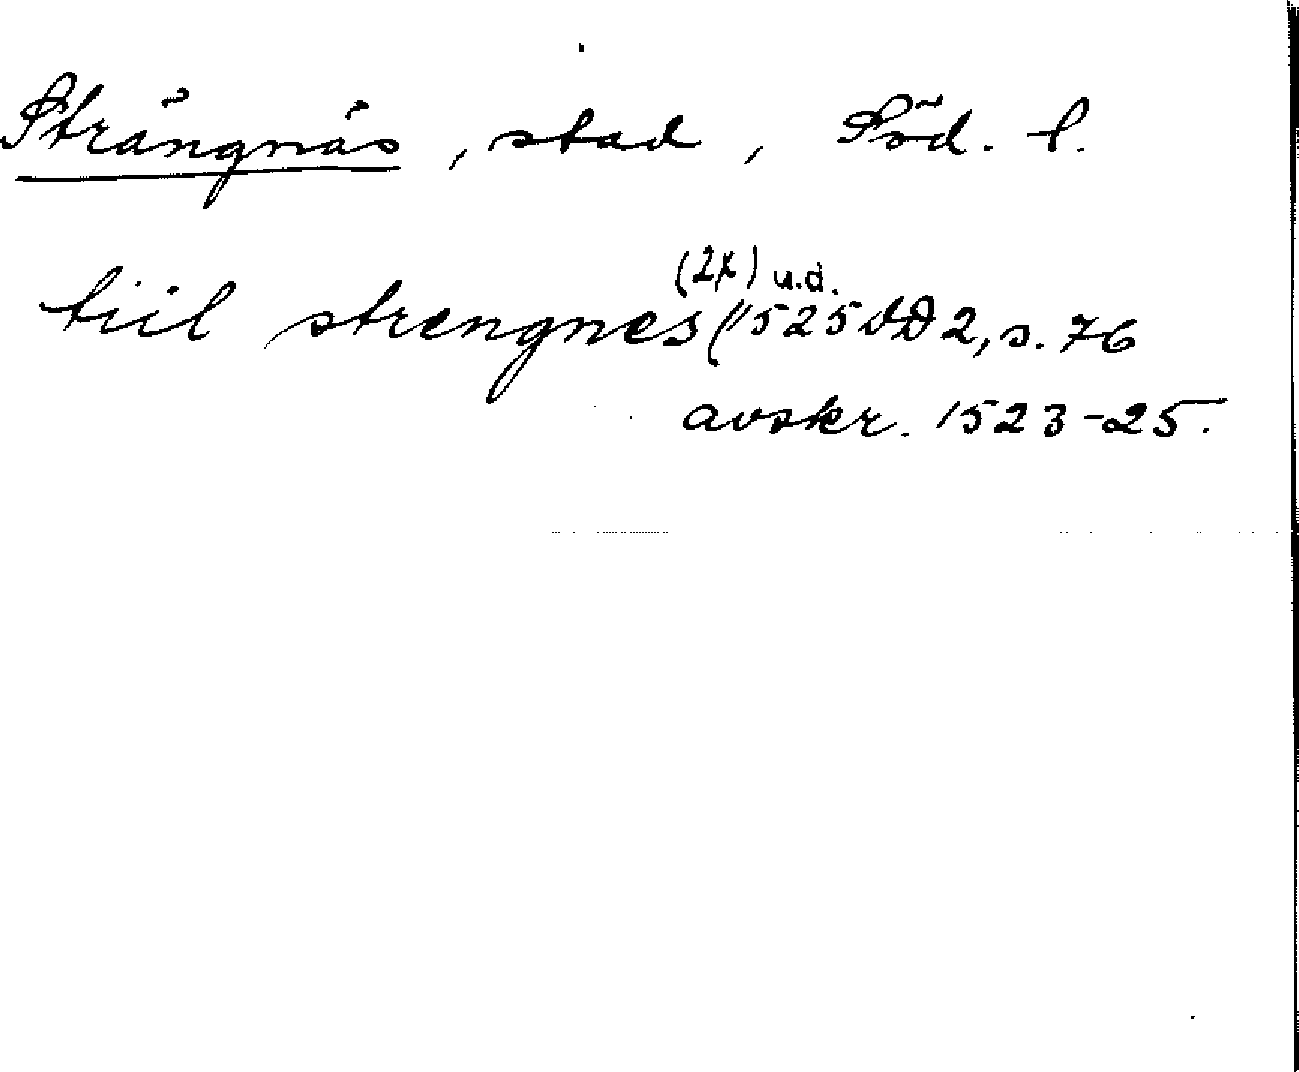 Strängnäs, stad, Söd. l.
(2x) u.d.
tiil strengnes (1525 DD 2, s. 76
avskr. 1523-25.